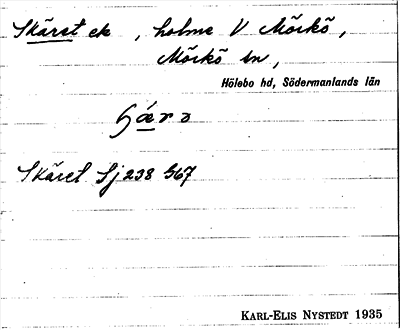 Skäret ek , holme V Mörkö ,
Mörkö sn ,
Hölebo hd, Södermanlands län
Skäret Sj 238 567
KARL-ELIS NYSTEDT 1935